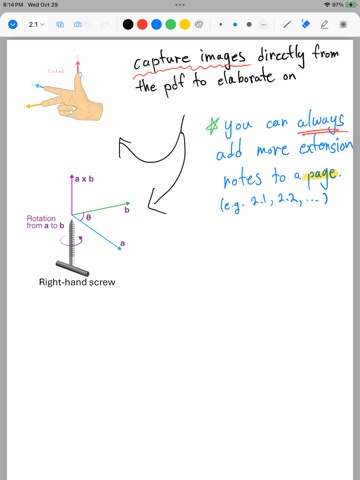 8:14 PM Wed Oct 29
97%
2.1
capture images directly from
the pdf to elaborate on
you can always
add more extension
notes to a page.
(e.g. 2.1, 2.2, ...)
a x b
b
θ
Rotation
from a to b
a
Right-hand screw